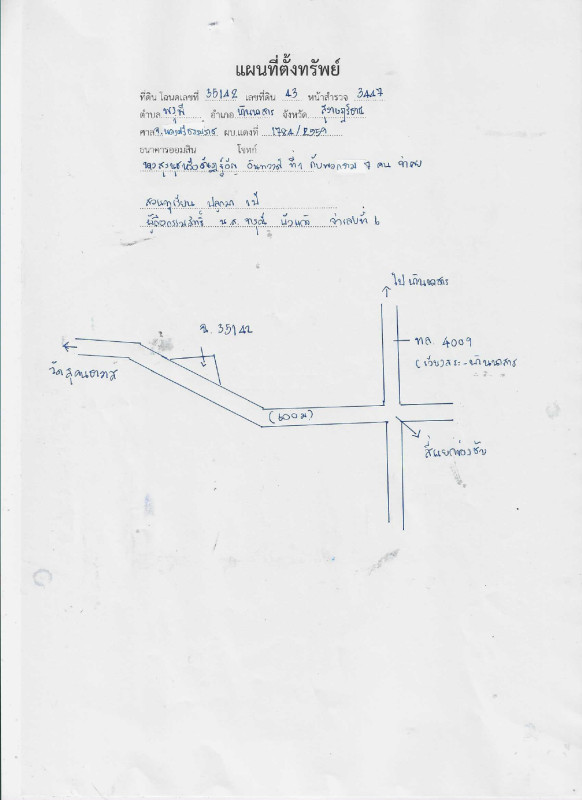 แผนที่ตั้งทรัพย์
ที่ดิน โฉนดเลขที่ 35142 เลขที่ดิน 43 หน้าสำรวจ 3447
ตำบล พรุพี อำเภอ บ้านนาสาร จังหวัด สุราษฎร์ธานี
ศาล จ.นครศรีธรรมราช ผบ.แดงที่ 1784/2559
ธนาคารออมสิน โจทก์
ที่ 1 กับพวกรวม คน จำเลย
สวนทุเรียน ปลูกมา 1 ปี
ผู้ถือกรรมสิทธิ์ น.ส. บัวแก้ว จำเลยที่ 6
ไป บ้านนาสาร
ฉ. 35142
ทล 4009
(เวียงสระ - บ้านนาสาร
วัดสุคนธาวาส
(600 ม)
สี่แยกคลองชัย